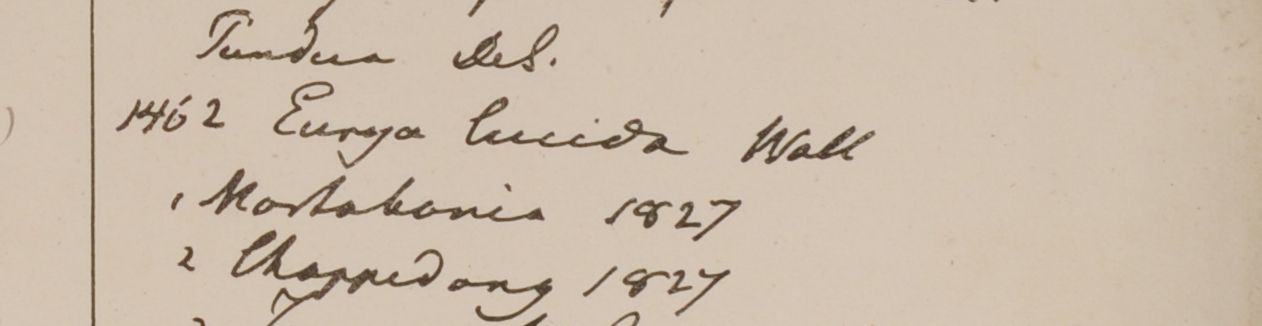 Tundua DeS.
1462 Eurya lucida Wall
1 Mortabania 1827
2 Chappedong 1827